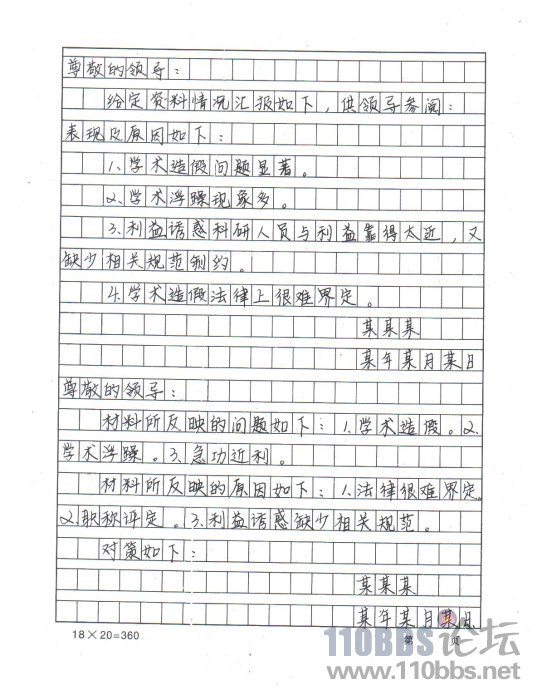 尊敬的领导：
给定资料情况汇报如下，供领导参阅：
表现及原因如下：
1、学术造假问题显著。
2、学术浮躁现象多。
3、利益诱惑科研人员与利益靠得太近，又
缺少相关规范制约。
4、学术造假法律上很难界定。
某某某
某年某月某日
尊敬的领导：
材料所反映的问题如下：1、学术造假。2、
学术浮躁。3、急功近利。
材料所反映的原因如下：1、法律很难界定。
2、职称评定。3、利益诱惑缺少相关规范。
对策如下：
某某某
某年某月某日
18×20=360 第 页
110BBS论坛
www.110bbs.net